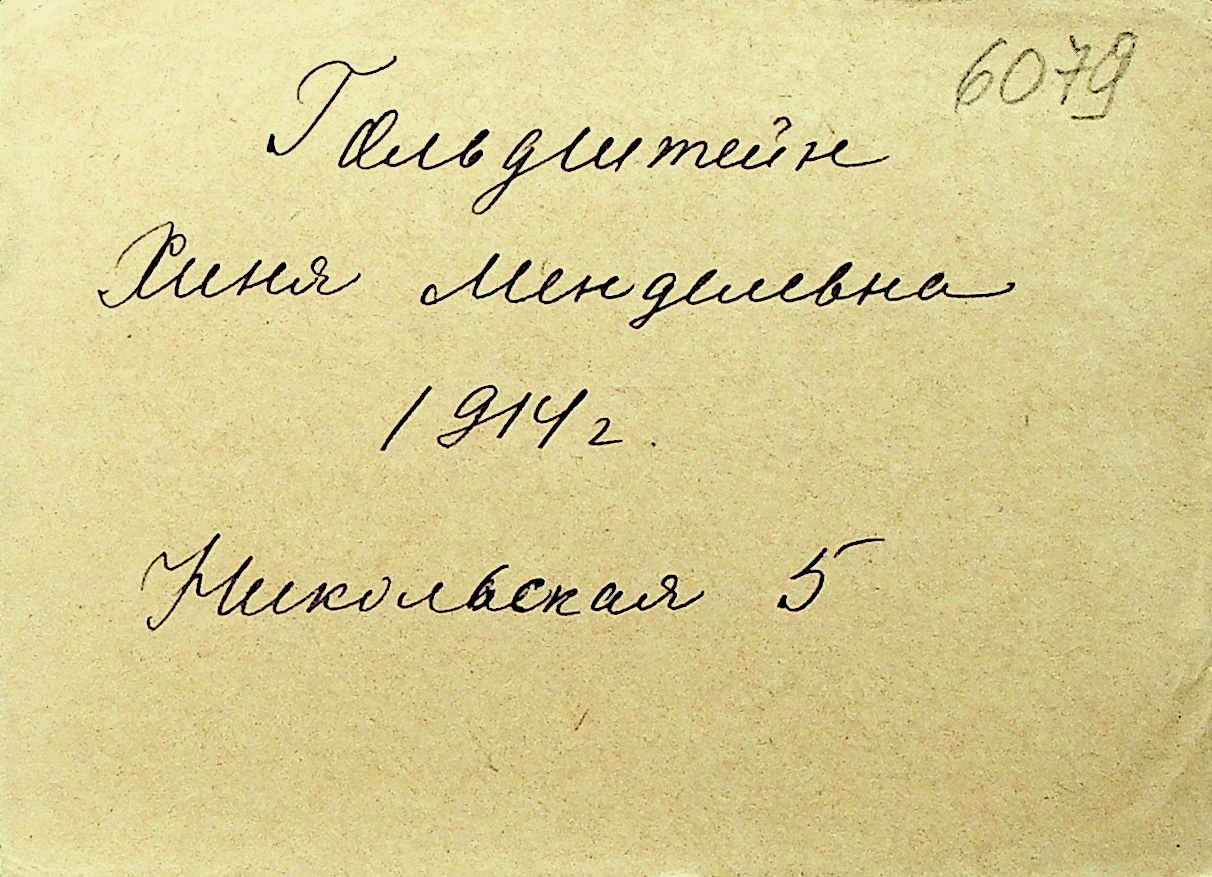 6079
Гольдштейн
Хиня Менделевна
1914 г.
Никольская 5